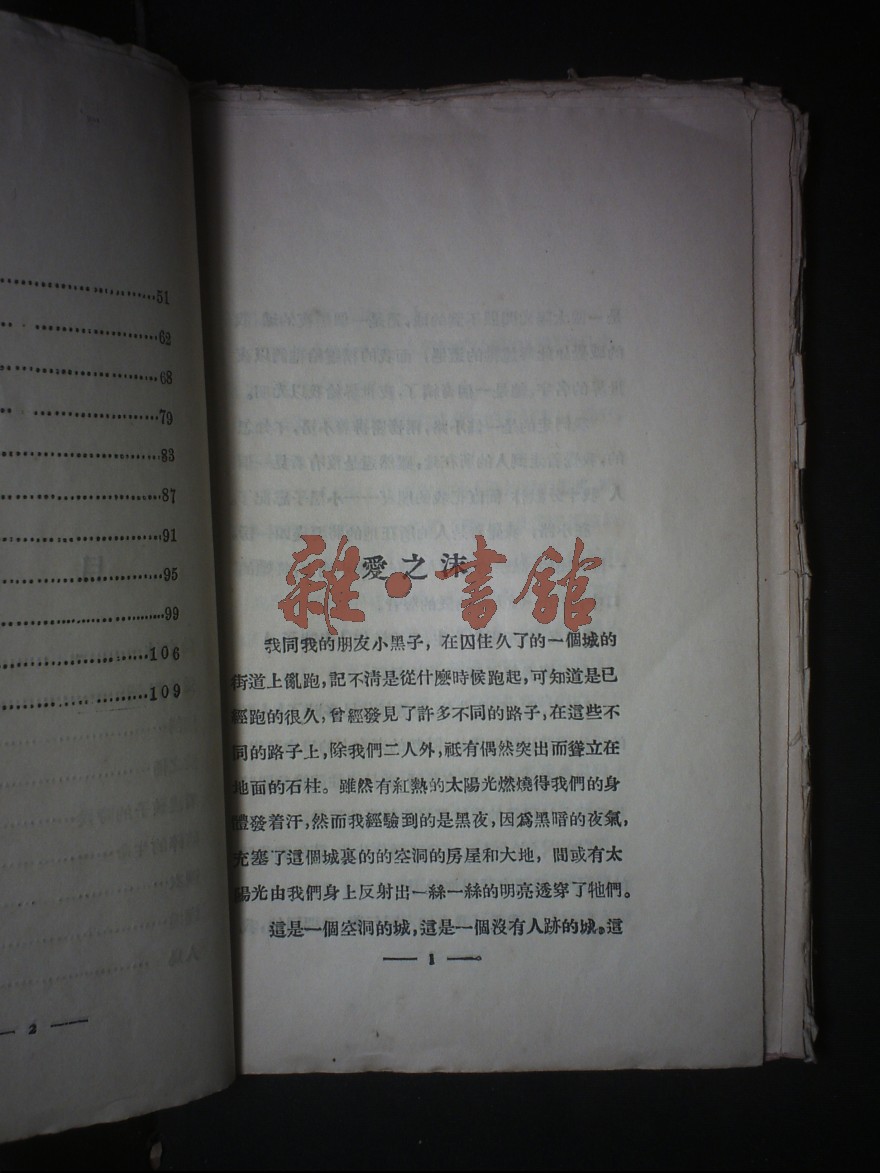 51
62
68
79
83
87
91
95
99
106
109
2
愛之沫
雜·書館
我同我的朋友小黑子，在囚住久了的一個城的
街道上亂跑，記不淸是從什麽時候跑起，可知道是已
經跑的很久，曾經發見了許多不同的路子，在這些不
同的路子上，除我們二人外，祗有偶然突出而聳立在
地面的石柱。雖然有紅熱的太陽光燃燒得我們的身
體發着汗，然而我經驗到的是黑夜，因爲黑暗的夜氣，
充塞了這個城裏的的空洞的房屋和大地，間或有太
陽光由我們身上反射出一絲一絲的明亮透穿了牠們。
這是一個空洞的城，這是一個沒有人跡的城。這
1